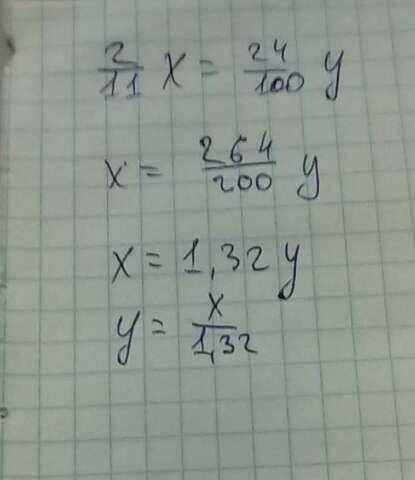 2/11 x = 24/100 y
x = 264/200 y
x = 1,32 y
y = x/1,32